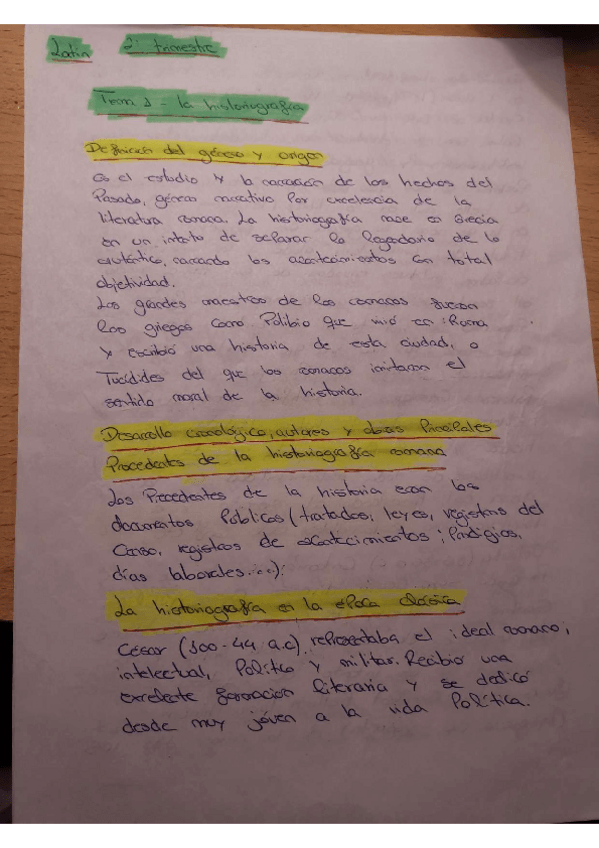 Latin 2º trimestre
Tema 1 - la historiografía
Definición del género y origen
Es el estudio y la narración de los hechos del
Pasado, género narrativo Por excelencia de la
literatura romana. La historiografía nace en Grecia
en un intento de separar lo legendario de lo
auténtico, narrando los acontecimientos con total
objetividad.
Los grandes maestros de los romanos fueron
los griegos como Polibio que vivió en Roma
y escribió una historia de esta ciudad, o
Tucídides del que los romanos imitaron el
sentido moral de la historia.
Desarrollo cronológico, autores y obras Principales
Precedents de la historiografía romana
Los Precedentes de la historia eran los
documentos Públicos (tratados, leyes, registros del
Censo, registros de acontecimientos; Prodigios,
días laborales...).
La historiografía en la época clásica
César (100-44 a.c) representaba el ideal romano;
intelectual, Político y militar. Recibió una
excelente formación literaria y se dedicó
desde muy jóven a la vida Política.